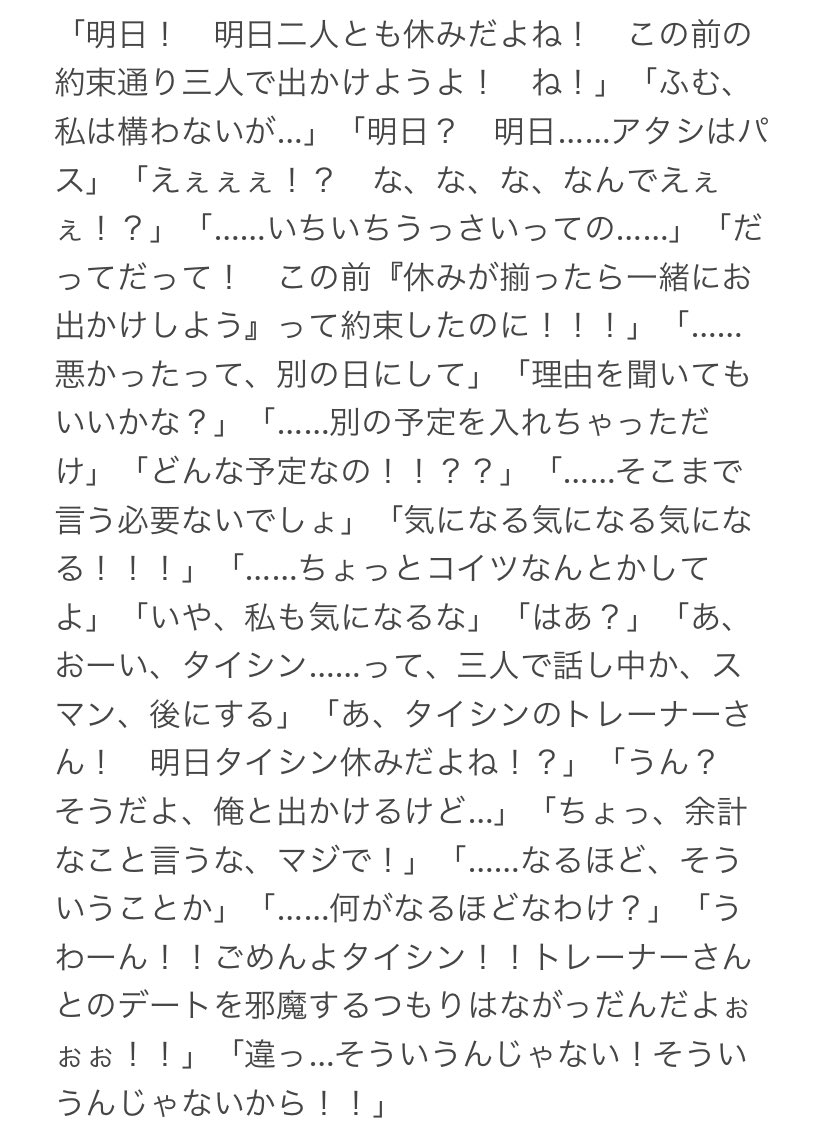 「明日！　明日二人とも休みだよね！　この前の
約束通り三人で出かけようよ！　ね！」「ふむ、
私は構わないが…」「明日？　明日……アタシはパ
ス」「えぇぇぇ！？　な、な、な、なんでえぇ
ぇ！？」「……いちいちうっさいっての……」「だ
ってだって！　この前『休みが揃ったら一緒にお
出かけしよう』って約束したのに！！！」「……
悪かったって、別の日にして」「理由を聞いても
いいかな？」「……別の予定を入れちゃっただ
け」「どんな予定なの！！？？」「……そこまで
言う必要ないでしょ」「気になる気になる気にな
る！！！」「……ちょっとコイツなんとかして
よ」「いや、私も気になるな」「はあ？」「あ、
おーい、タイシン……って、三人で話し中か、ス
マン、後にする」「あ、タイシンのトレーナーさ
ん！　明日タイシン休みだよね！？」「うん？
そうだよ、俺と出かけるけど…」「ちょっ、余計
なこと言うな、マジで！」「……なるほど、そう
いうことか」「……何がなるほどなわけ？」「う
わーん！！ごめんよタイシン！！トレーナーさん
とのデートを邪魔するつもりはながっだんだよぉ
ぉぉ！！」「違っ…そういうんじゃない！そうい
うんじゃないから！！」